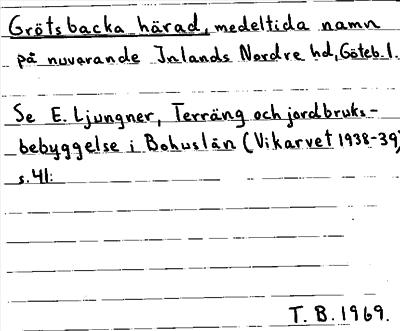 Grötsbacka härad, medeltida namn
på nuvarande Inlands Nordre hd, Göteb. l.
Se E. Ljungner, Terräng och jordbruks-
bebyggelse i Bohuslän (Vikarvet 1938-39)
s. 41:
T. B. 1969.